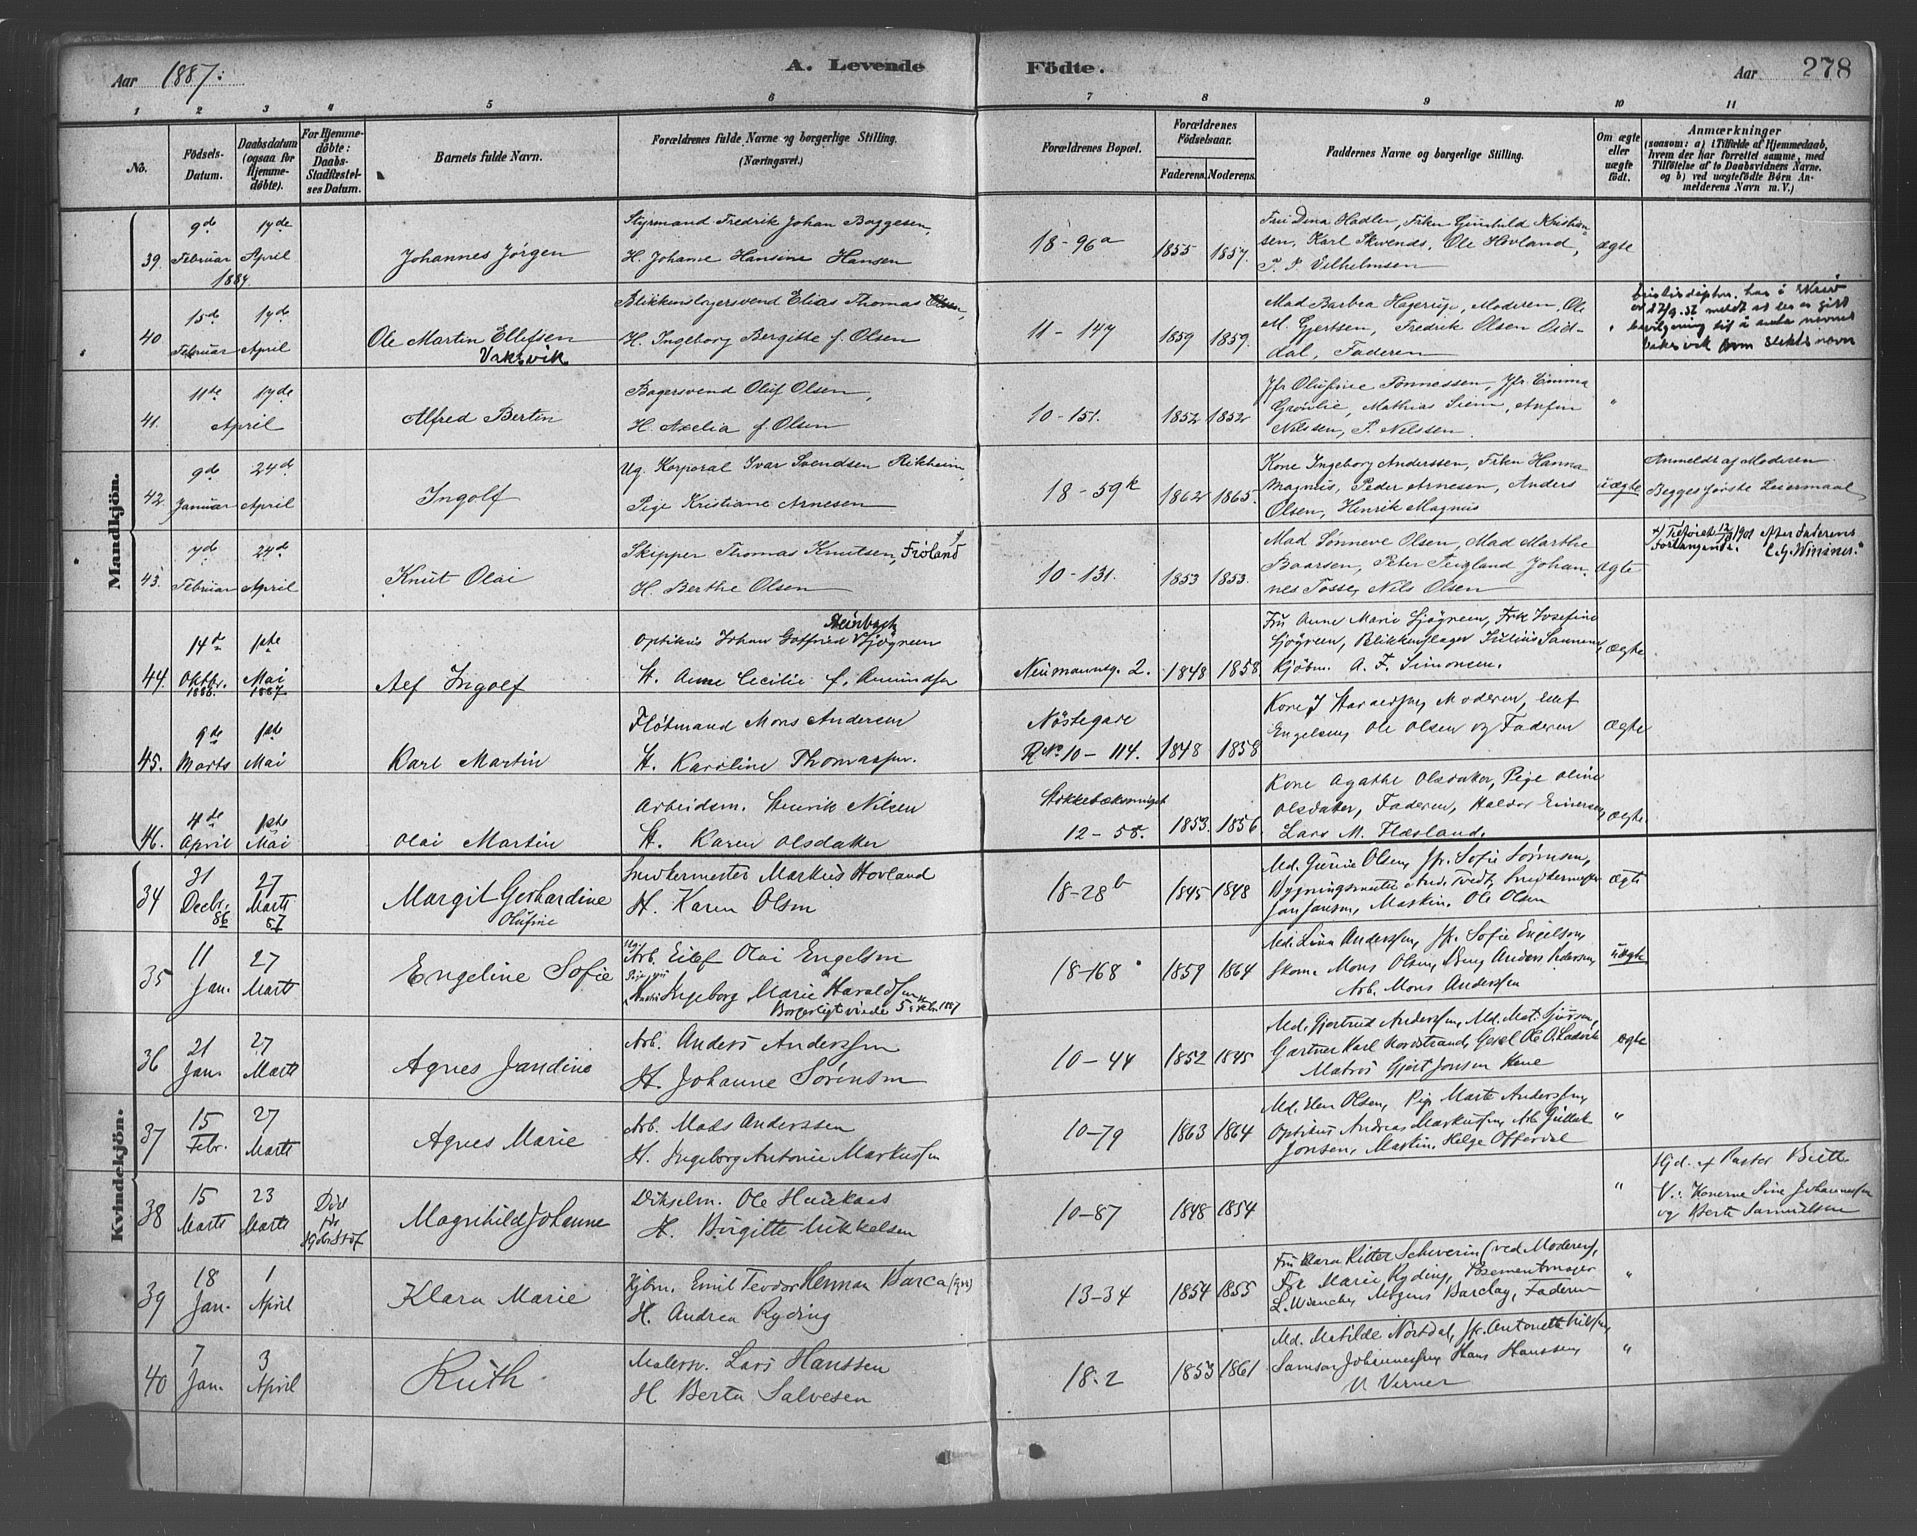 Aar 1887. A. Levende Födte. Aar 278
1 2 3 4 5 6 7 8 9 10 11
No.
Födsels-Datum.
Daabsdatum (ogsaa for Hjemmedöbte).
For Hjemmedöbte: Daabs-Stadfæstelses Datum.
Barnets fulde Navn.
Forældrenes fulde Navne og borgerlige Stilling. (Næringsvei.)
Forældrenes Bopæl.
Forældrenes Födselsaar.
Faderens. Moderens.
Faddernes Navne og borgerlige Stilling.
Om ægte eller uægte födt.
Anmærkninger
(saasom: a) i Tilfælde af Hjemmedaab, hvem der har forrettet samme, med Tilföielse af to Daabsvidners Navne. og b) ved uægtefödte Börn Anmelderens Navn m. V.)
Mandkjön.
39. 9de Februar 1887 17de April Johannes Jörgen
Styrmand Fredrik Johan Baggesen,
H. Johanne Hansine Hansen
18-96a 1855 1857.
Fru Dina Hadler, Frkn Gunhild Kristian-
sen, Karl Skivends, Ole Hovland,
T. P. Vilhelmsen
ægte
40 15de Februar 17de April Ole Martin Ellefsen
Vaksvik
Blikkenslagersvend Elias Thomas Olsen,
H. Ingeborg Bergitte f. Olsen
11-147 1859 1859.
Mad Barbra Hagerup, Moderen, Ole
M. Gjertsen, Fredrik Olsen Did-
dal, Faderen
"
41. 11te April 17de Alfred Bertin
Bagersvend Oluf Olsen,
H. Axelia f. Olsen
10-151. 1852 1852
Jfr Olufine Tönnessen, Jfr Emma
Grönlie, Mathias Siem, Anfin
Nilssen, P. Nilssen
"
42. 9de Januar 24de April Ingolf
Ug. Korporal Ivar Svendsen Rikheim,
Pige Kristiane Arnesen
18-59k 1862 1865.
Kone Ingeborg Anderssen, Frkn Hanna
Magnus, Peder Arnesen, Anders
Olsen, Henrik Magnus
uægte
Anmeldt af Moderen
Begges förste Leiermaal
43. 7de Februar 24de April Knut Olai
Skipper Thomas Knutsen, Fröland
H. Berthe Olsen
10-131. 1853 1853.
Mad Sönneve Olsen, Mad Marthe
Baarsen, Peter Teigland, Johan-
nes Tosse, Nils Olsen
ægte
44. 14de Oktbr. 1886. 1ste Mai 1887. Alf Ingolf
Steinbach
Optikus Johan Gotfried Sjögreen
H. Anne Cecilie f. Amundsen
Neumannsg. 2. 1848 1858
Fru Anne Marie Sjögreen, Frk Josefine
Sjögreen, Blikkenslager Julius Sannem,
Kjöbm. A. F. Simonsen.
ægte
45. 9de Marts 1ste Mai Karl Martin
Flötmand Mons Andersen
H. Karoline Thomassen.
Nöstegade
R. No 10-114. 1848 1858
Engelsen, Ole Olsen og Faderen
ægte
46. 4de April 1ste Mai Olai Martin
Arbeidsm. Henrik Nilsen
H. Karen Olsdatter
12-58. 1853. 1856.
Kone Agathe Olsdatter, Pige Oline
Olsdatter, Faderen, Haldor Einersen,
Lars M. Flæsland.
ægte
Kvindekjön.
34 31 Decbr. 86 27 Marts 87 Margit Gerhardine
Olufine
Snedkermester Markus Hovland
H. Karen Olsen
18-28b 1845 1848
Md. Gurine Olsen, Jfr. Sofie Sörensen,
Bygningsmester And. Tvedt, Snedkermester
Jan Jansen, Maskin. Ole Olsen
ægte
35 11 Jan. 27 Marts Engeline Sofie
Arb. Eilef Olai Engelsen
Ingeborg Marie Haraldsen
18-168 1859 1864
Md. Lina Anderssen, Jfr. Sofie Engelsen,
Skom. Mons Olsen, Dreng Anders Pedersen,
Arb. Mons Anderssen
uægte
36 21 Jan. 27 Marts Agnes Jandine
Arb. Anders Anderssen
H. Johanne Sörensen
10-44 1852 1845
Md. Gjertrud Anderssen,
Gartner Karl Nordstrand,
Matros Gjert Jonsen
ægte
37 15 Febr. 27 Marts Agnes Marie
Arb. Mads Anderssen
H. Ingeborg Antonie Markussen
10-79 1863 1864
Md. Elen Olsen, Pig. Marte Anderssen,
Optikus Andreas Markussen, Arb. Gullak
Jonsen, Maskin. Helge Offerdal
"
38 15 Marts 23 Marts Död Magnhild Johanne
Ole Haukaas
H. Birgitte Mikkelsen
10-87 1848 1854
"
Hjd. af Pastor Brett
V.: Konerne Sine Johannessen
og Berte Samuelsen
39 18 Jan. 1 April Klara Marie
Kjbm. Emil Teodor Herman Barca
H. Andrea Ryding
13-34 1854 1855
Fru Klara Ritter Scheverin (ved Moderen),
Frk. Marie Ryding, Possementmager
L. Wiencke, Mogens Barclay, Faderen
"
40 7 Jan. 3 April Ruth
Malersv. Lars Hanssen
H Berta Salvesen
18-2 1853 1861
Md. Matilde Nordal, Jfr. Antonette Nilsen,
Samson Johannessen, Hans Hanssen,
V. Verner
"